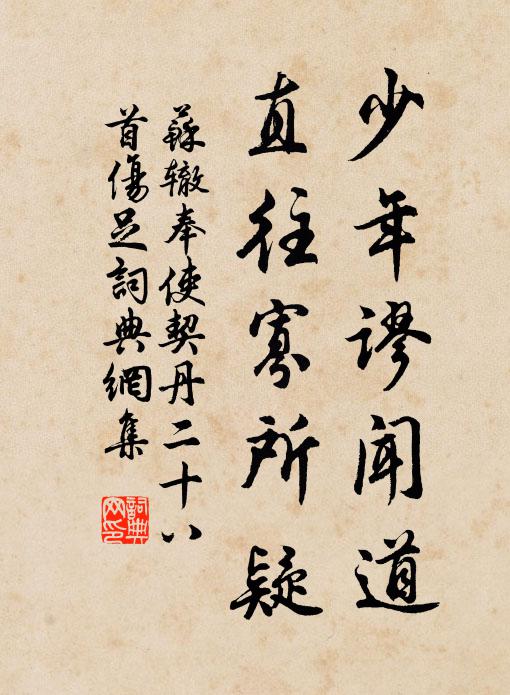 少年谬闻道
直往寡所疑
蘇辙奉使契丹二十八
首傷足詞典網集
詞典網印